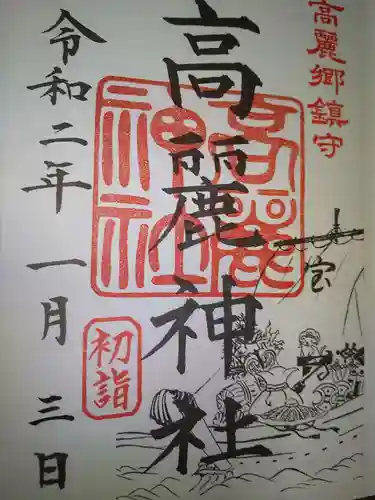 高麗郷鎮守
高麗神社
高麗
神社
宝
初詣
令和二年一月三日